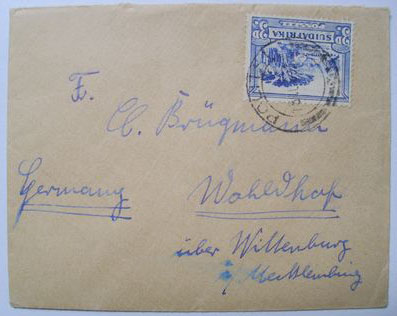 SUIDAFRIKA
3D 3D
POINT
F.
Cl. Brügmann
Germany
Wohldhof
über Wittenburg
i/ Mecklenburg